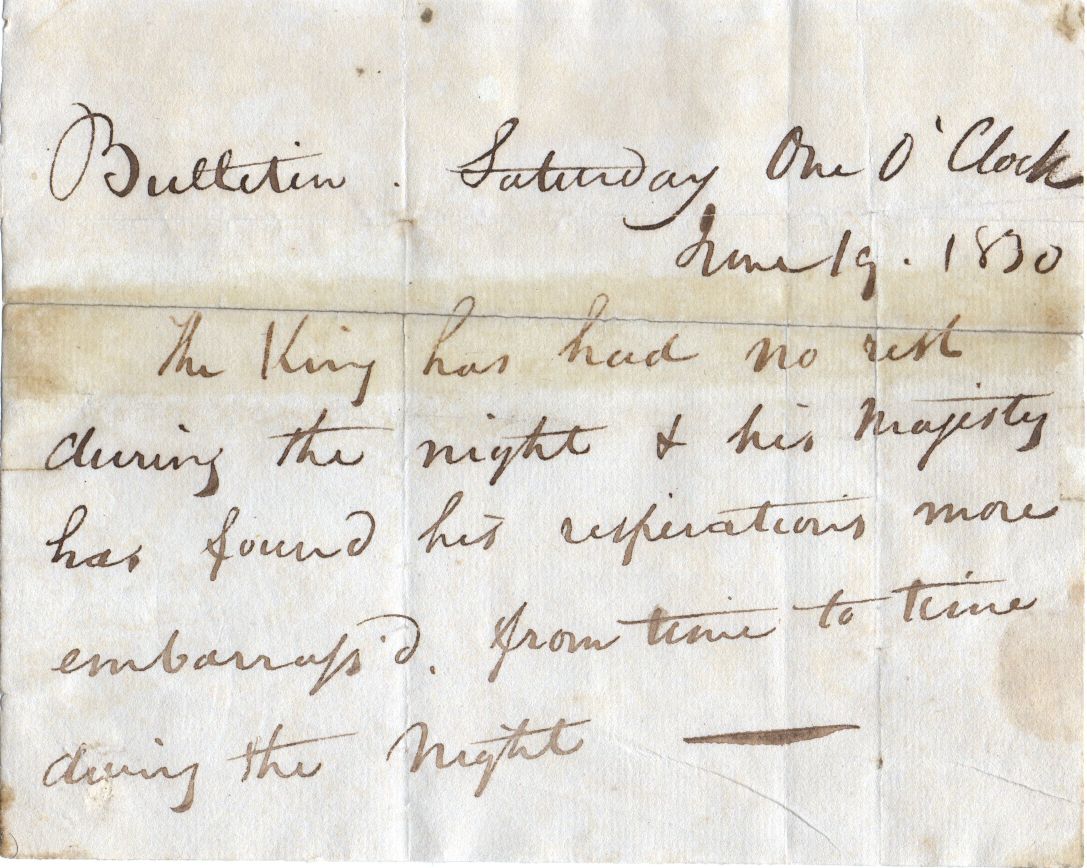 Bulletin. Saturday One O'Clock
June 19. 1830
The King has had no rest
during the night & his Majesty
has found his respirations more
embarrass'd. from time to time
during the Night —